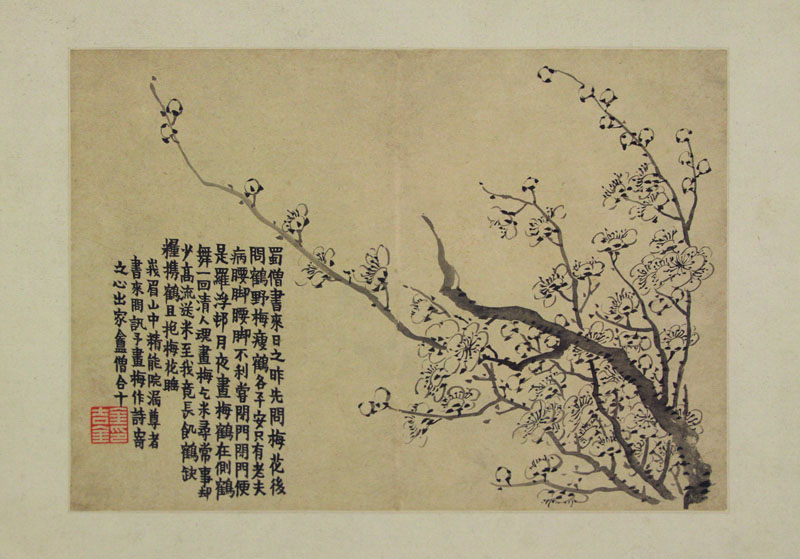 蜀僧書來日之昨先問梅花後
問鶴野梅瘦鶴各平安只有老夫
病腰脚腰脚不利嘗閉門閉門便
是羅浮邨月夜畫梅鶴在側鶴
舞一回清人魂畫梅乞米尋常事却
少高流送米至我竟長飢鶴缺
糧携鶴且抱梅花睡
峩眉山中精能院漏尊者
書來問訊予畫梅作詩寄
之心出家盦僧合十
金吉金印